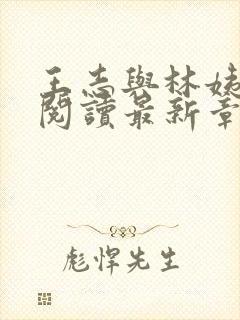 王志與林姨
閱讀最新章
彪悍先生